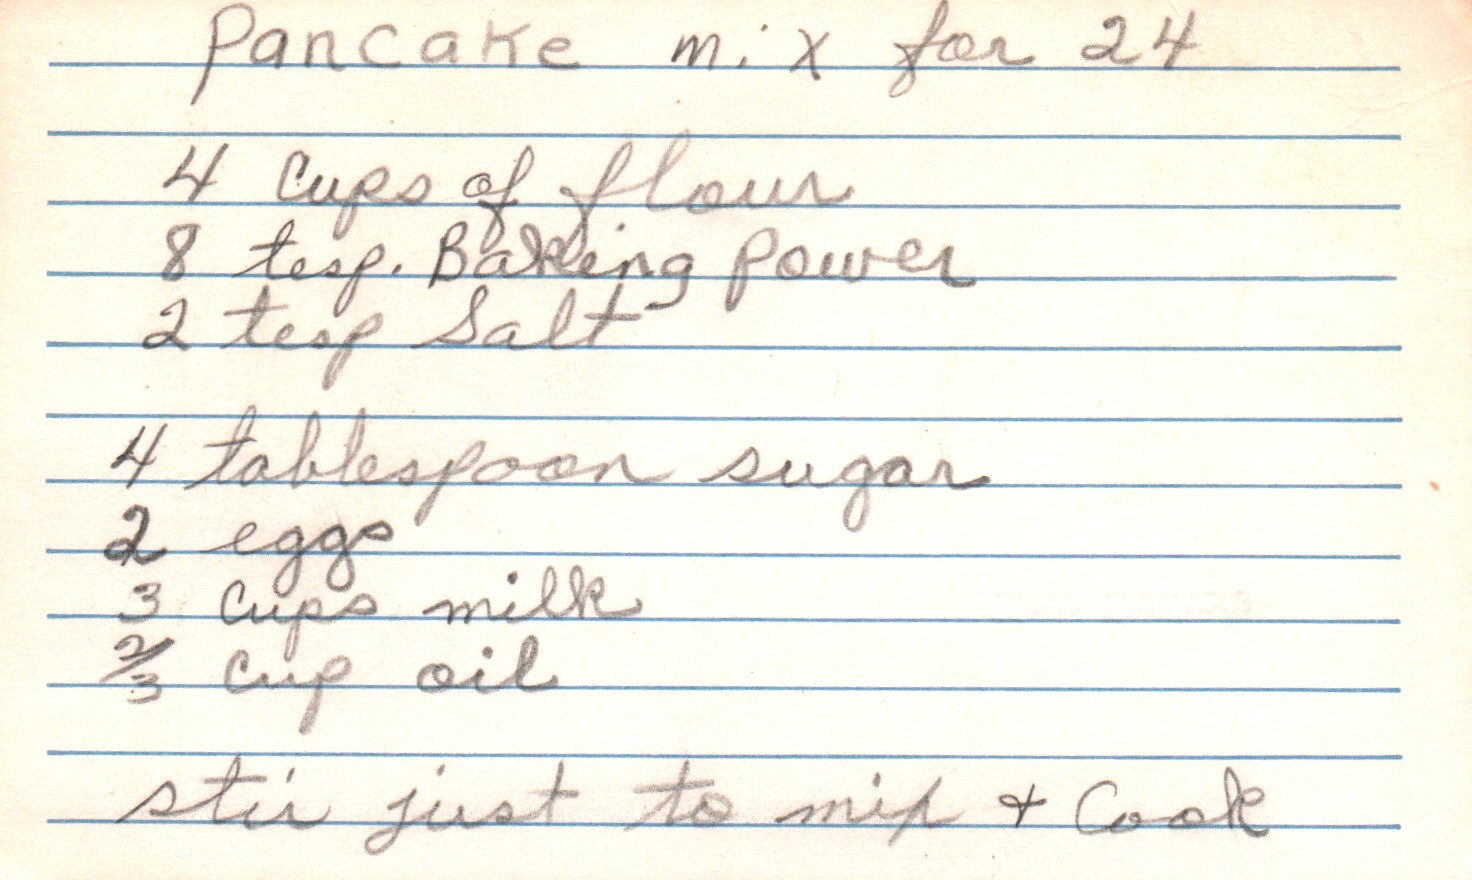 Pancake mix for 24
4 cups of flour
8 tesp. Baking Power
2 tesp Salt
4 tablespoon sugar
2 eggs
3 cups milk
2/3 cup oil
stir just to mix & Cook